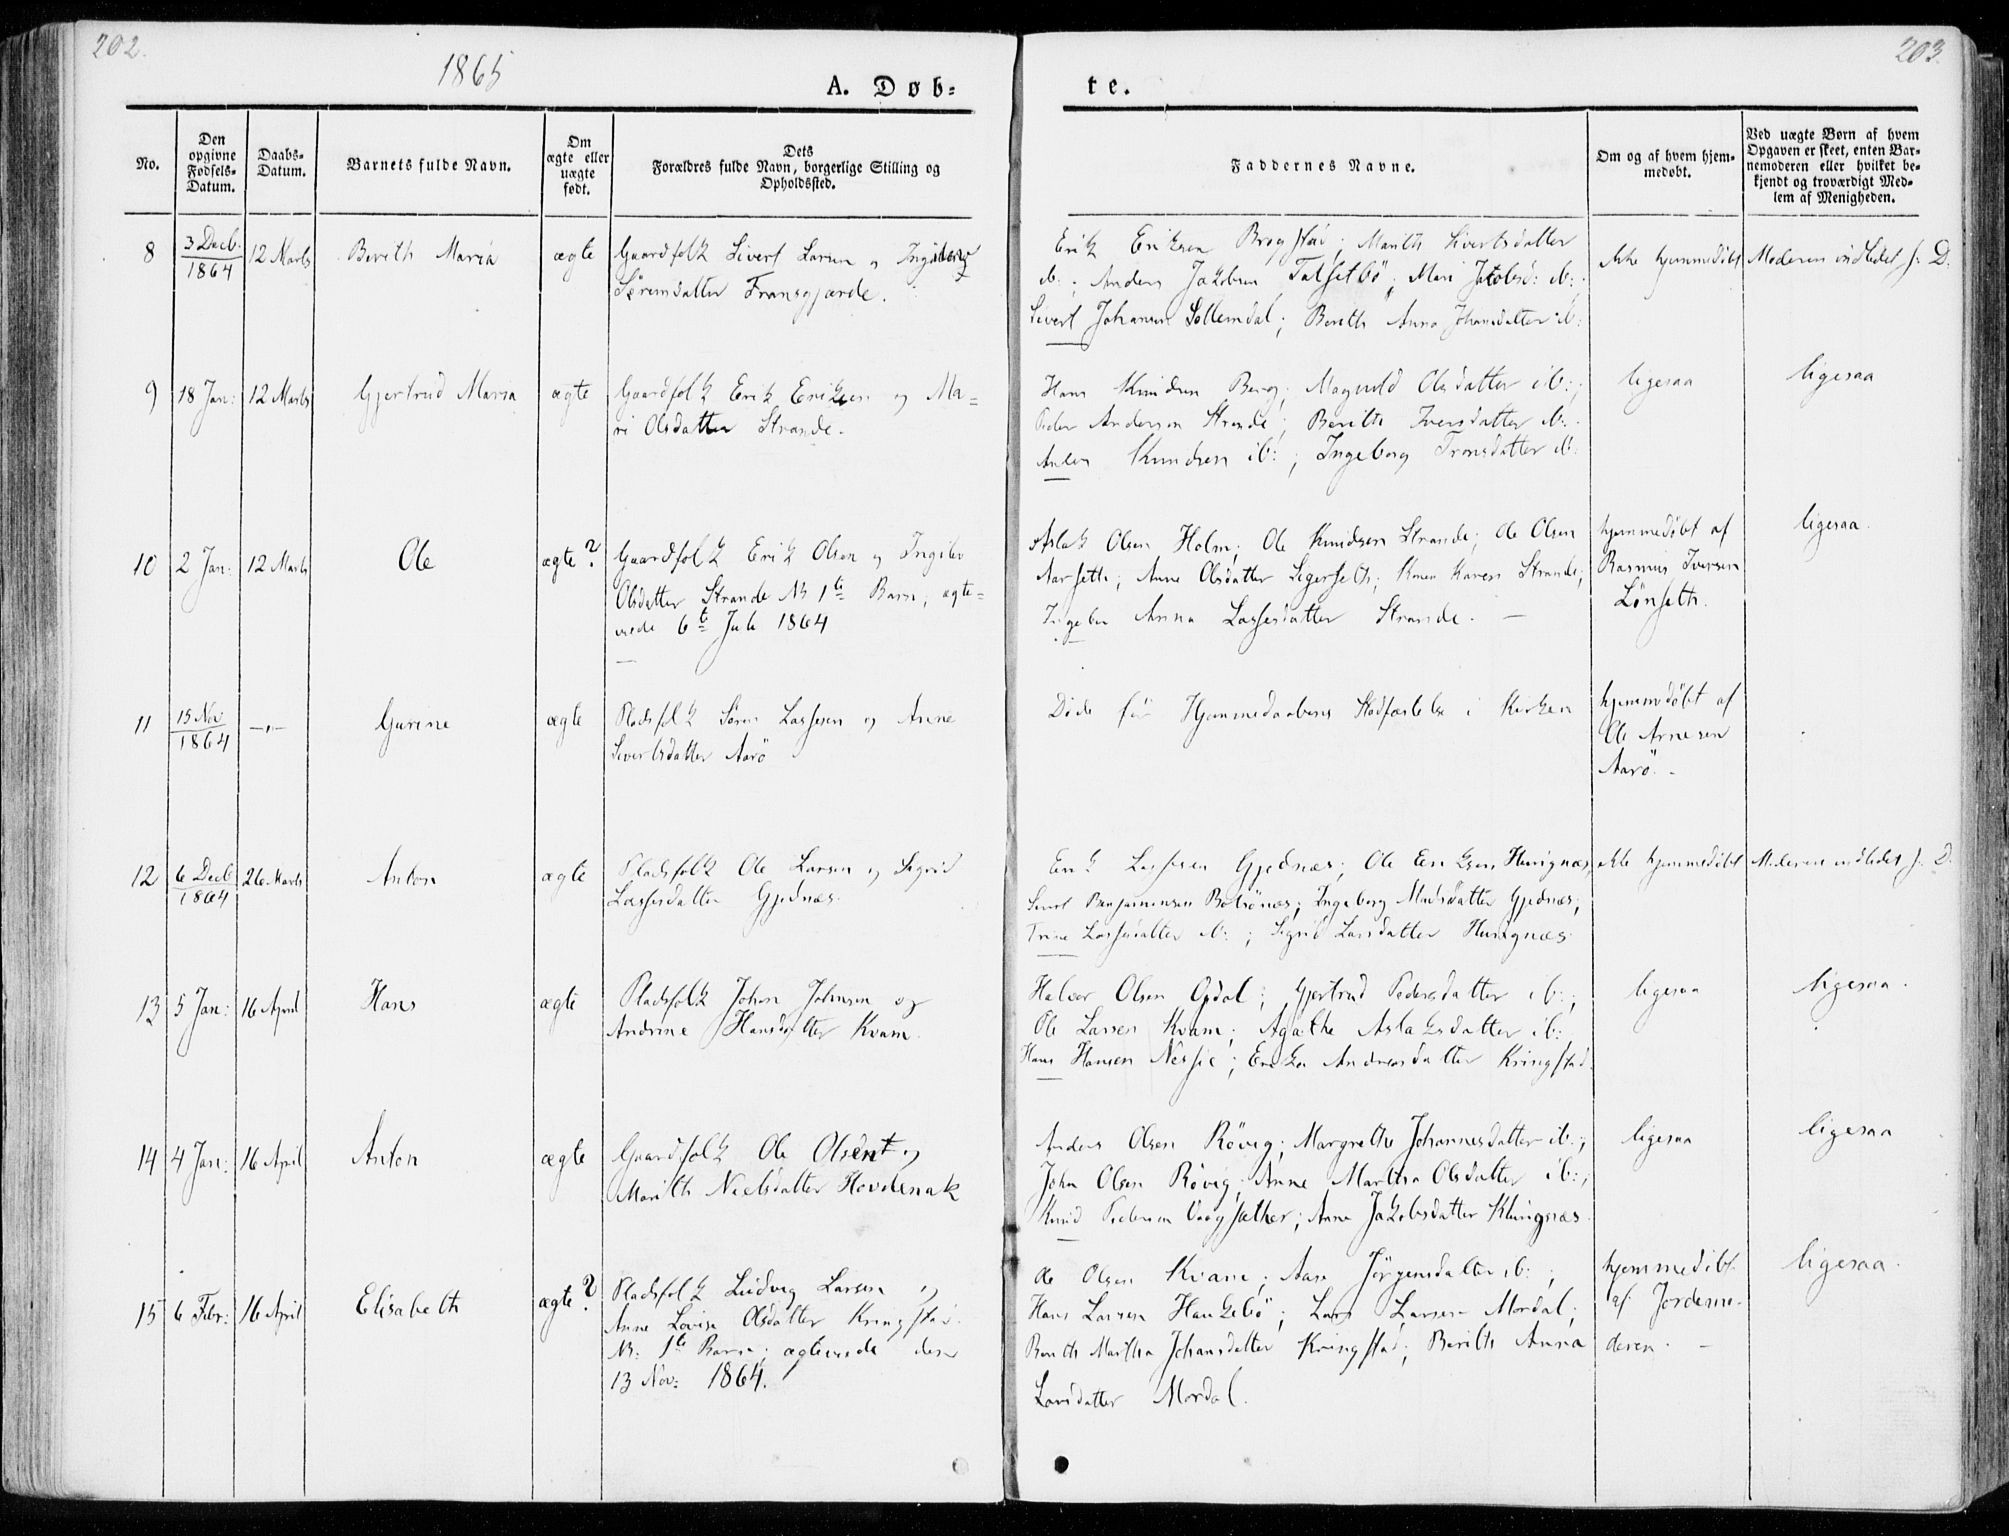 202.
1865
A. Døb-
te.
203.
No.
Den
opgivne
Fødsels-
Datum.
Daabs-
Datum.
Barnets fulde Navn.
Om
ægte eller
uægte
født.
Dets
Forældres fulde Navn, borgerlige Stilling og
Opholdssted.
Faddernes Navne.
Om og af hvem hjem-
medøbt.
Ved uægte Børn af hvem
Opgaven er skeet, enten Bar-
nemoderen eller hvilket be-
kjendt og troværdigt Med-
lem af Menigheden.
8
3 Decb.
1864
12 Marts
Berith Maria
ægte
Gaardfolk Sivert Larsen og
Sørensdatter Fransgjærde.
Erik Eriksen Brogstad; Marith Sivertsdatter
ib:; Anders Jakobsen Talsetbö; Mari Jakobsd: ib:
Sivert Johansen Sollemdal; Berith Anna Johansdatter ib:
ikke hjemmedöbt
Moderen indledet f: D.
9
18 Jan:
12 Marts
Gjertrud Maria
ægte
Gaardfolk Erik Eriksen og Ma-
ri Olsdatter Strande.
Hans Knudsen Berg; Magnild Olsdatter ib:;
Peder Andersen Strande; Berith Iversdatter ib:
Anders Knudsen ib:; Ingeborg Tronsdatter ib:
ligesaa
ligesaa
10
2 Jan:
12 Marts
Ole
ægte?
Gaardfolk Erik Olsen og Ingeber
Olsdatter Strande NB 1te Barn; ægte-
viede 6te Juli 1864
Aslak Olsen Holm; Ole Knudsen Strande; Ole Olsen
Aarseth; Anne Olsdatter Segerseth; Karen Strande;
Anna Lassesdatter Strande. -
hjemmedöbt af
Rasmus Iversen
Lönseth.
ligesaa.
11
15 Nov
1864
-"-
Gurine
ægte
Pladsfolk Sören Lassesen og Anne
Sivertsdatter Aarö
Döde för Hjemmedaabens Stadfæstelse i Kirken
hjemmedöbt af
Ole Arnesen
Aarö. -
12
6 Decb
1864
26 Marts
Anton
ægte
Pladsfolk Ole Larsen og Sigrid
Lassesdatter Gjednæs.
Erik Lassesen Gjednæs; Ole Eriksen
Sivert Benjaminsen Bolsönæs; Ingeborg Madsdatter Gjednæs;
Trine Lassesdatter ib:; Sigrid Larsdatter
ikke hjemmedöbt
Moderen indledet f: D.
13
5 Jan:
16 April
Hans
ægte
Pladsfolk Johan Johnsen og
Andrine Hansdatter Kvam.
Halvor Olsen Opdol; Gjertrud Pedersdatter ib:;
Ole Larsen Kvam; Agathe Aslaksdatter ib:
Hans Hansen Nesje; Erika Andreasdatter Kringstad.
ligesaa
ligesaa.
14
4 Jan:
16 April
Anton
ægte
Gaardfolk Ole Olsen og
Marith Nielsdatter Hovdenak
Anders Olsen Rövig; Margrethe Johannesdatter ib:;
John Olsen Rövig; Anne Martha Olsdatter ib:;
Knud Pedersen Vaagsæther; Anne Jakobsdatter Klungnæs.
ligesaa
ligesaa
15
6 Febr:
16 April
Elisabeth
ægte?
Pladsfolk Ludvig Larsen og
Anne Lovise Olsdatter Kringstad.
NB: 1te Barn; ægteviede den
13 Nov: 1864.
Ole Olsen Kvam; Aase Jörgensdatter ib:;
Hans Larsen Haukebö; Lars Larsen Mordal;
Berith Martha Johansdatter Kringstad; Berith Anna
Larsdatter Mordal.
hjemmedöbt
af Jordemo-
deren. -
ligesaa.